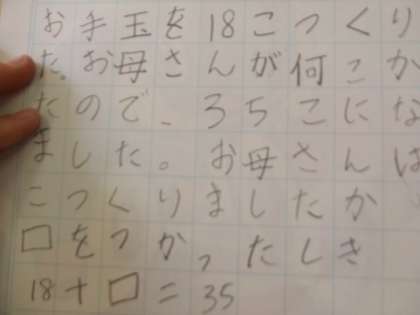 お手玉を18こつくり
た。お母さんが何こか
たので、35こにな
ました。お母さんは
こつくりましたか
□をつかったしき
18+□=35